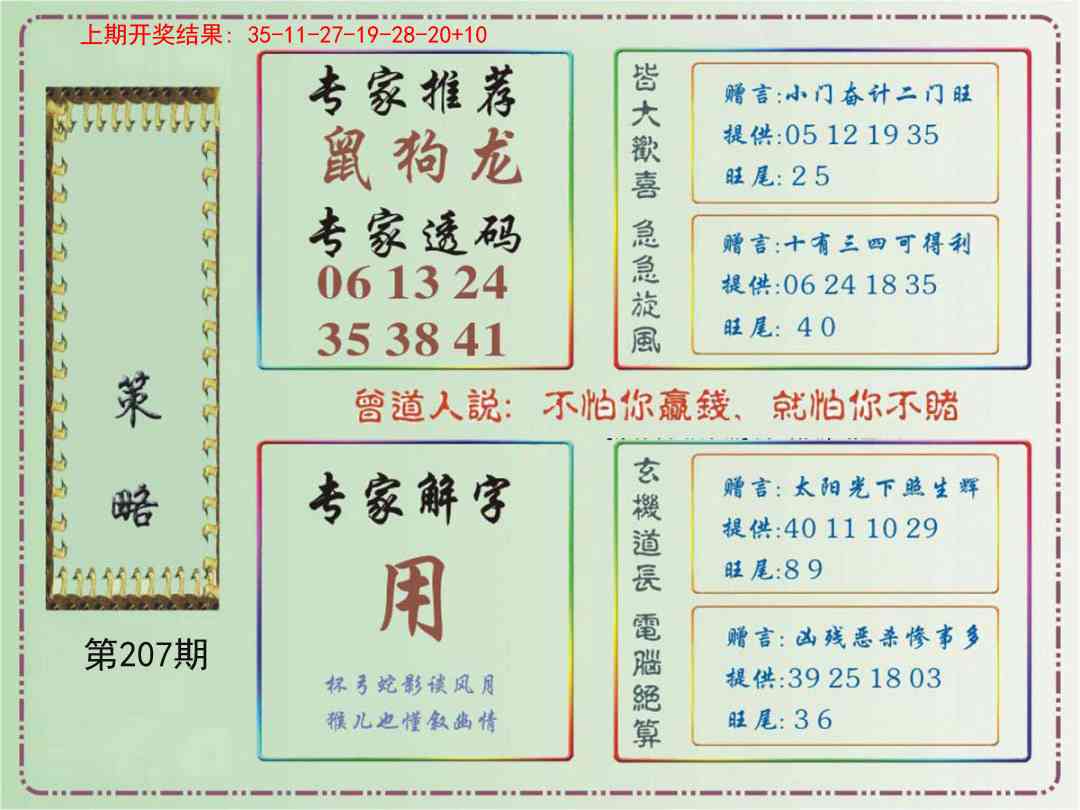 上期开奖结果: 35-11-27-19-28-20+10
策
略
第207期
专家推荐
鼠狗龙
专家透码
06 13 24
35 38 41
皆大歡喜
赠言:小门奋计二门旺
提供:05 12 19 35
旺尾: 2 5
急急旋風
赠言:十有三四可得利
提供:06 24 18 35
旺尾: 4 0
曾道人説: 不怕你贏錢、就怕你不賭
专家解字
用
杯弓蛇影谈风月
猴儿也懂叙幽情
玄機道長
赠言: 太阳光下照生辉
提供:40 11 10 29
旺尾:8 9
電腦絕算
赠言: 凶残恶杀惨事多
提供:39 25 18 03
旺尾: 3 6